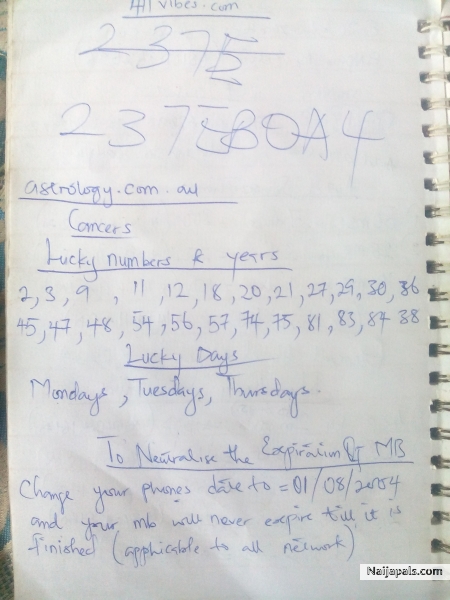 vibes.com
2375
2375BOA4
astrology.com.au
Cancers
Lucky numbers & years
2, 3, 9, 11, 12, 18, 20, 21, 27, 29, 30, 36
45, 47, 48, 54, 56, 57, 74, 75, 81, 83, 84 38
Lucky Days
Mondays, Tuesdays, Thursdays.
To Neutralise the Expiration Of MB
Change your phones date to = 01/08/2004
and your mb will never expire till it is
finished (applicable to all network)
Naijapals.com